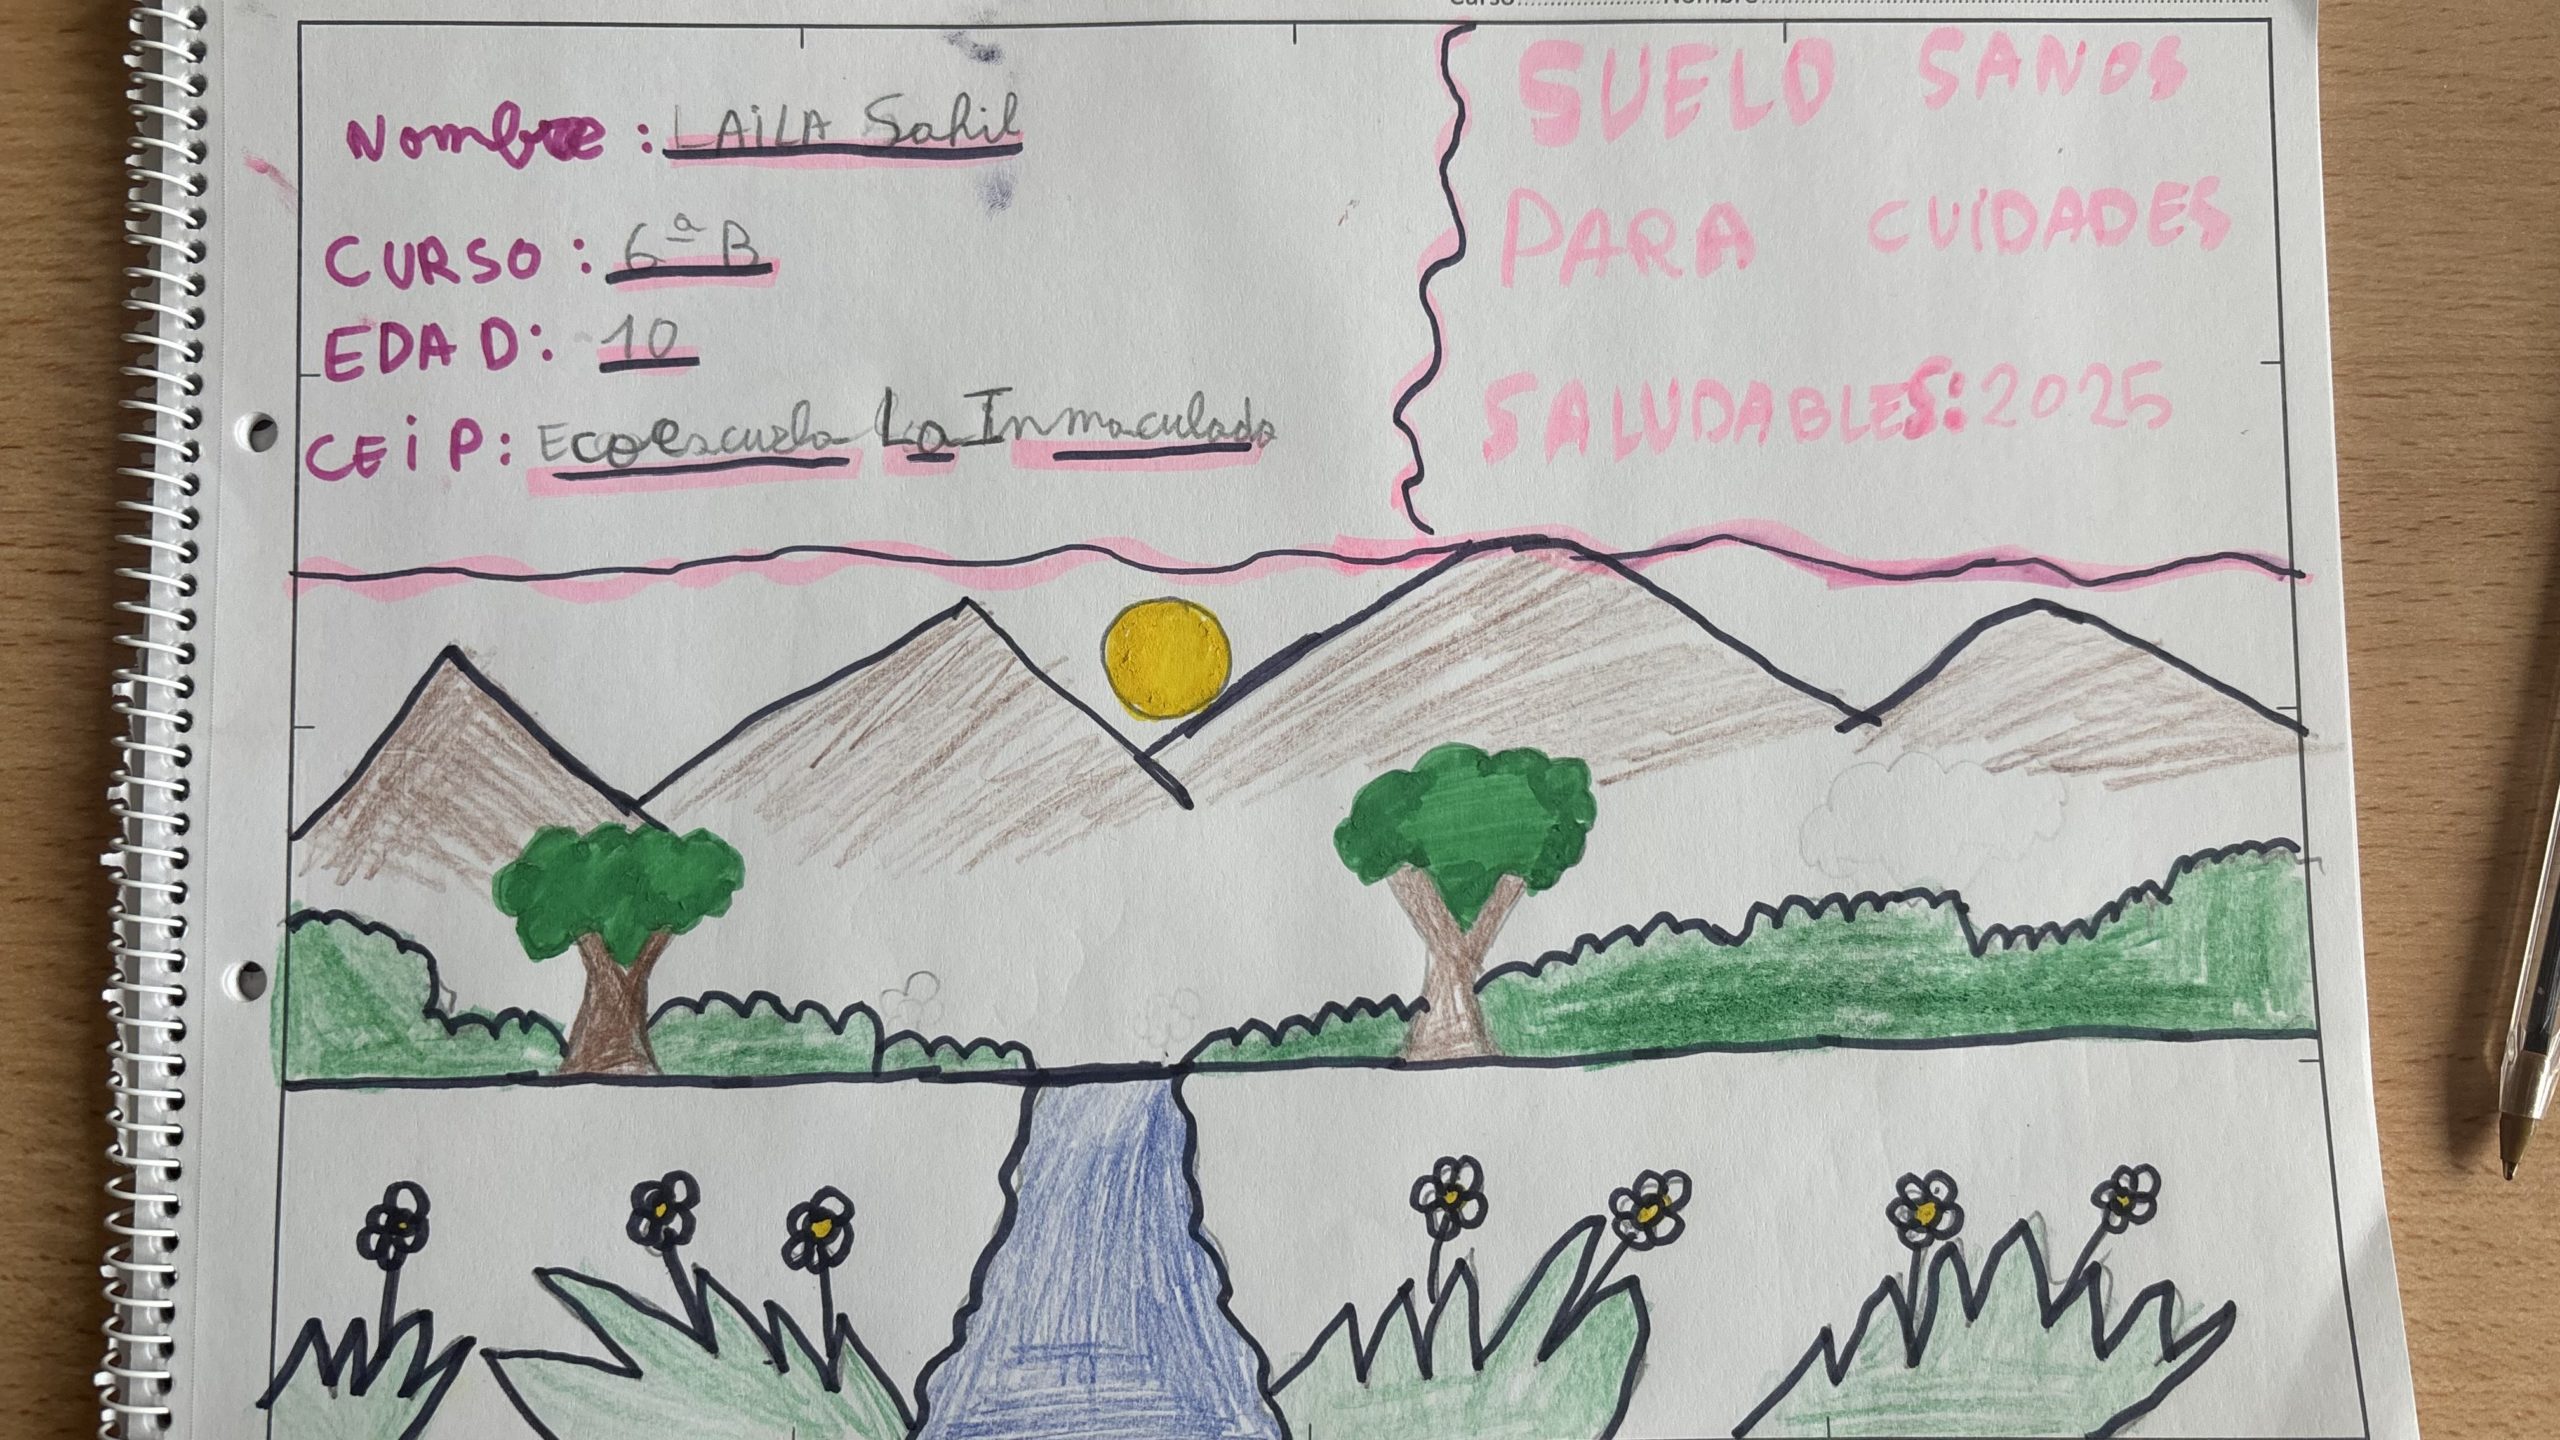 Curso Nombre
Nombre : LAILA Sahil
CURSO : 6ª B
EDAD: 10
CEiP: Ecoescuela La Inmaculada
SUELO SANOS
PARA CUIDADES
SALUDABLES: 2025